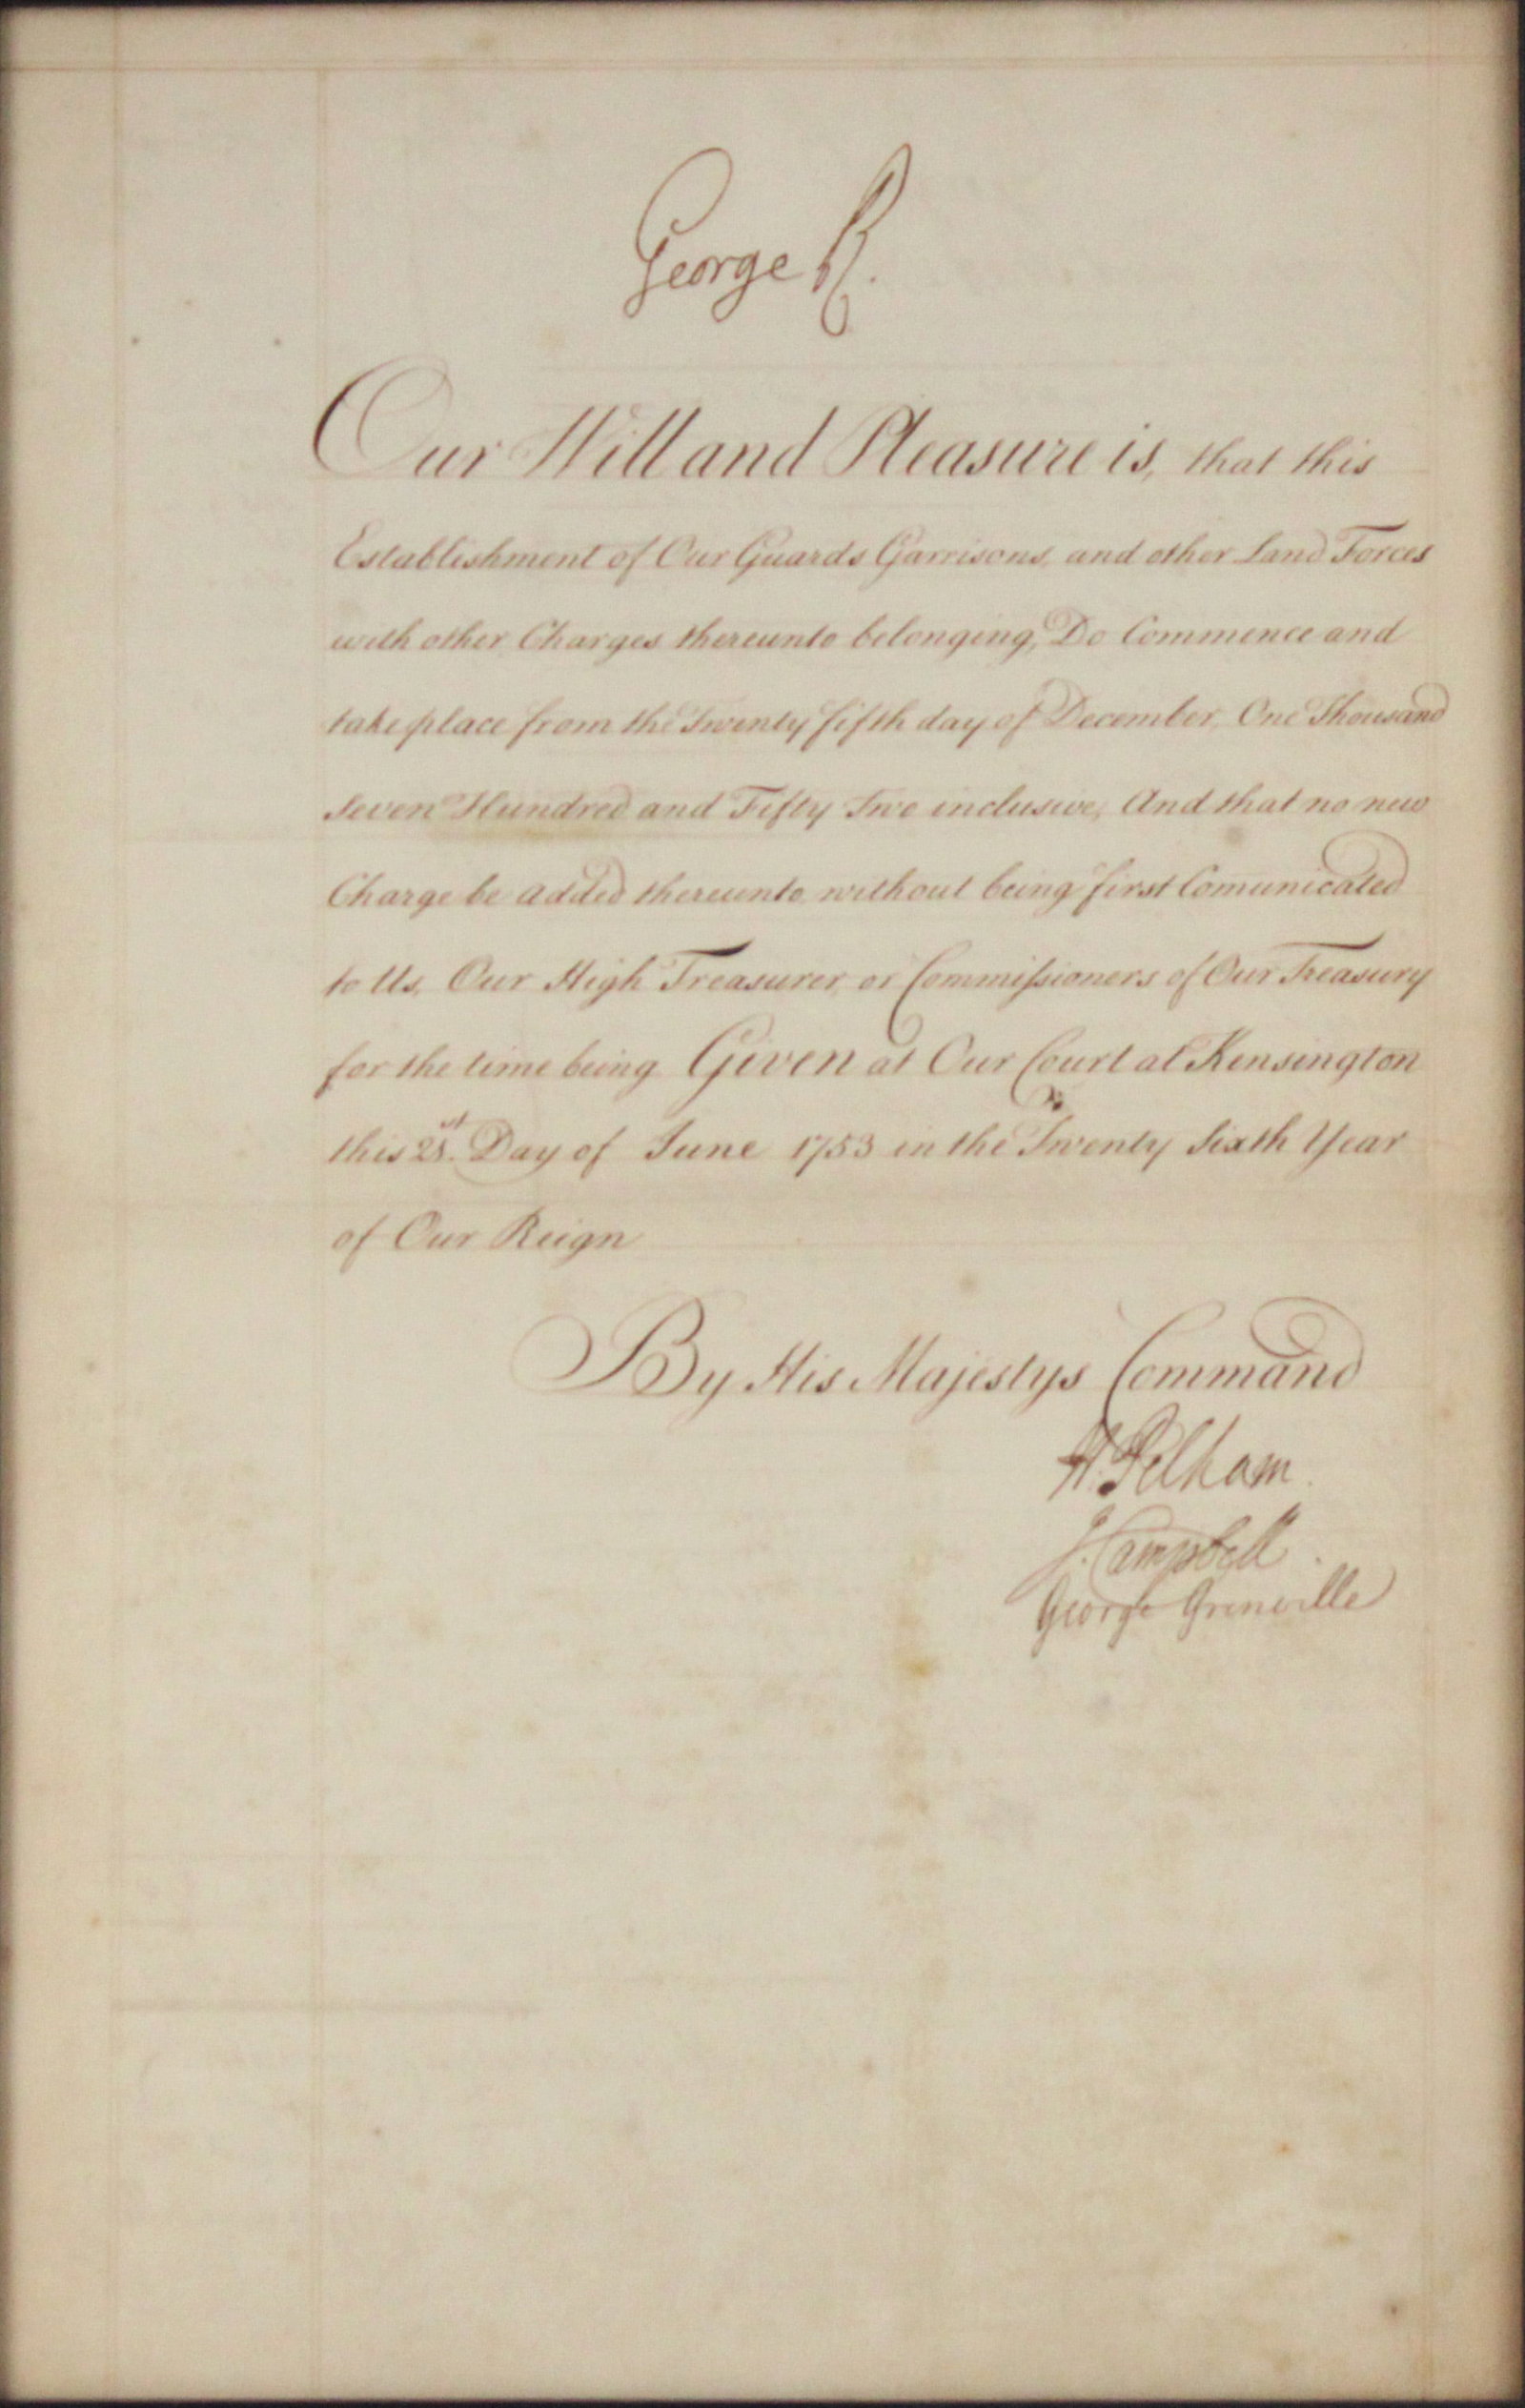 George R.
Our Will and Pleasure is, that this
Establishment of Our Guards Garrisons, and other Land Forces
with other Charges thereunto belonging, Do Commence and
take place from the Twenty fifth day of December, One Thousand
Seven Hundred and Fifty Two inclusive, And that no new
Charge be added thereunto without being first Comunicated
to Us, Our High Treasurer, or Commissioners of Our Treasury
for the time being Given at Our Court at Kensington
this Day of June 1753 in the Twenty Sixth Year
of Our Reign
By His Majestys Command
H. Pelham.
J. Campbell.
George Grenville